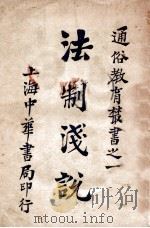 通俗教育叢書之一
法制淺說
上海中華書局印行
www.toutu.com